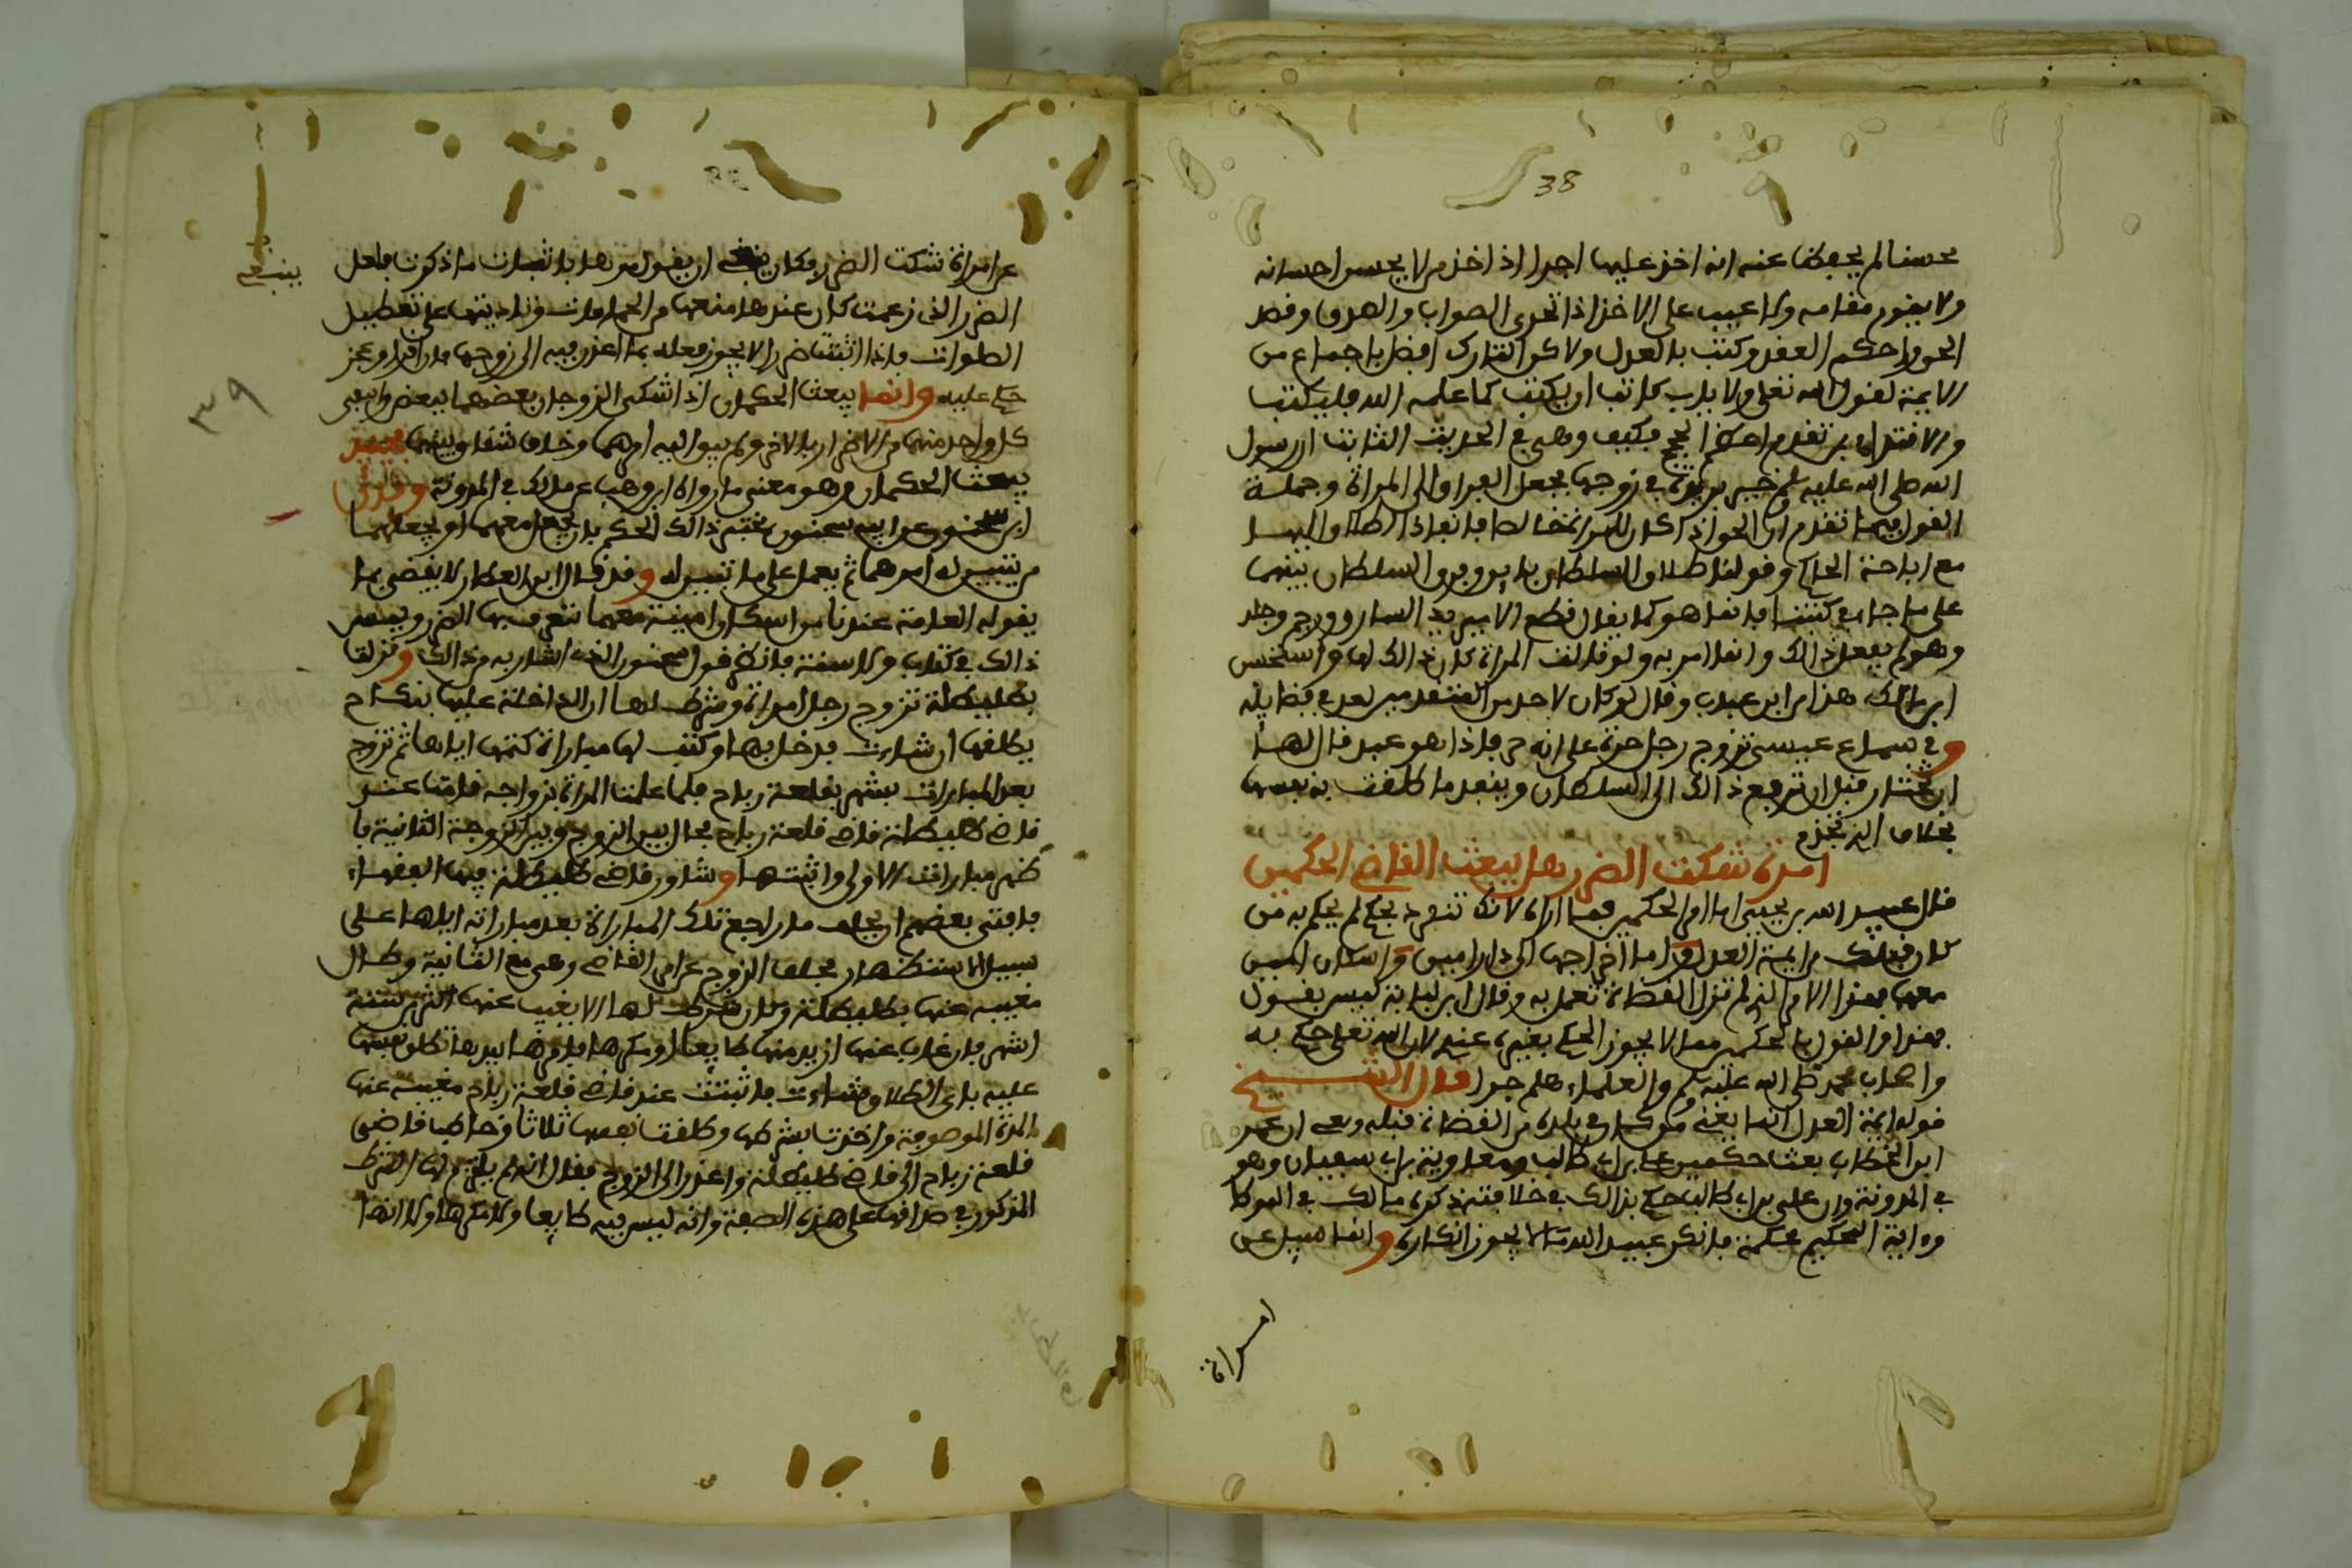 38
محسنا لم يحفظ عنه انه اخذ عليها اجرا اذا اخذ من لا يحسن احسانه
ولا يقوم مقامه ولا عيب على الاخذ اذا تحرى الصواب والصدق وقصد
الحق واحكم العقد وكتب بالعدل ولاكن التارك افضل باجماع من
الايمة لقول الله تعلى ولا ياب كاتب ان يكتب كما علمه الله فليكتب
والاقتدا بمن تقدم احكم الحج فكيف وهي في الحديث الثابت ان رسول
الله صلى الله عليه وسلم خير بريرة في زوجها فجعل الفراق الى المراة وجملة
القول فيما تقدم ان الحق اذا كان للمراة خالصا فانفاذ الطلاق اليها
مع اباحة الحاكم وقولنا طلاق السلطان بل يفرق السلطان بينهما
على ما جا في كتبنا فانما هو كما يقال قطع الامير يد السارق ورجم وجلد
وهو لم يفعل ذالك وانما امر به ولو قالت المراة كان ذالك لها واستحسن
ابن مالك هذا من ابن عتاب وقال لو كان لاحد من المتقدمين لعد في فضايله
وفي سماع عيسى تزوج رجل حرة على انه حر فاذا هو عبد قال لها
ان تختار قبل ان ترفع ذالك الى السلطان وينفذ ما طلقت به نفسها
بخلاف الذي تجذم
امراة شكت الضرر هل يبعث القاضي الحكمين
قال عبيد الله بن يحيى اما امر الحكمين فما اراه لانك تنفرد بحكم لم يحكم به من
كان قبلك من ايمة العدل واما اخراجها الى دار امين او اسكان امين
معها فهذا الامر الذي لم تزل القضاة تعمل به وقال ابن لبابة ليس يقول
بهذا والقول بالحكمين مما لا يجوز الحكم بغيره عندي لان الله تعلى حكم به
واصحاب محمد صلى الله عليه وسلم والعلماء هلم جرا قال الشيخ
قوله ايمة العدل انما يعني من كان في بلده من القضاة قبله وعى ان عمر
ابن الخطاب بعث حكمين علي بن ابي طالب ومعاوية بن ابي سفيان وهو
في المدونة وان علي بن ابي طالب حكم بذالك في خلافته ذكره مالك في الموطا
واية التحكيم محكمة فانكر عبيد الله ما لا يجوز انكاره وانما سيل عن
امراة
عن امراة شكت الضرر فكان ينبغي ان يقول مرها باثبات ما ذكرت فلعل
ينبغي
الضرر الذي زعمت كان عندها منعها من الحمامات وتاديبها على تعطيل
الصلوات فاذا اثبتت ضررا لا يجوز فعله بها اعذر فيه الى زوجها فان اقر او عجز
حكم عليه وانما يبعث الحكمان اذا اشتكى الزوجان بعضهما ببعض وادعى
٣٩
كل واحد منهما من الاخر اربابا لاخر ولم يبن اليه امرهما وخاف شقاق بينهما فحينئذ
يبعث الحكمان وهو معنى ما رواه ابن وهب عن مالك في المدونة وقال
ابن سحنون عن ابيه سحنون يختبر ذالك الحكم بان يجعل معهما او يجعلهما
من يتبين له امرهما ثم يعمل على ما تبين له وقد قال ابن العطار لا يقضى بما
يقوله العامة عندنا من اسكان امينة معهما تتعرف بها الضرر وليس
ذالك في كتاب ولا سنة فانكر قول سحنون الذي اشار به من ذالك ونزلت
بطليطلة تزوج رجل امراة وشرط لها ان الداخلة عليها بنكاح
يطلقها ان شاءت فدخل بها وكتب لها مباراة كتمها اياها ثم تزوج
بعد المبارات بشهر بقلعة رباح فلما علمت المراة بزواجه قامت عند
قاضي طليطلة قاضي قلعة رباح فحال بين الزوج وبين الزوجة الثانية فا
ظهر مبارات الاولى واثبتها وشاور قاضي طليطلة فيها الفقهاء
فافتى بعضهم ان يحلف ما راجع تلك المباراة بعد مباراته اياها على
سبيل الاستظهار فحلف الزوج عن امر القاضي وبقى مع الثانية وطال
مغيبه عنها بطليطلة وكان شرط لها الا يغيب عنها اكثر من ستة
اشهر فان غاب عنها ازيد منها طايعا او مكرها فامرها بيدها تطلق نفسها
عليه باي الطلاق شاءت فاثبتت عند قاضي قلعة رباح مغيبه عنها
المدة الموصوفة واخذت بشرطها وطلقت نفسها ثلاثا وخاطب قاضي
قلعة رباح الى قاضي طليطلة واعذر الى الزوج فقال انه لم يلتزم لها الشرط
المذكور في صداقها على هذه الصفة وانه ليس فيه طايعا ولا مكرها ولا انها